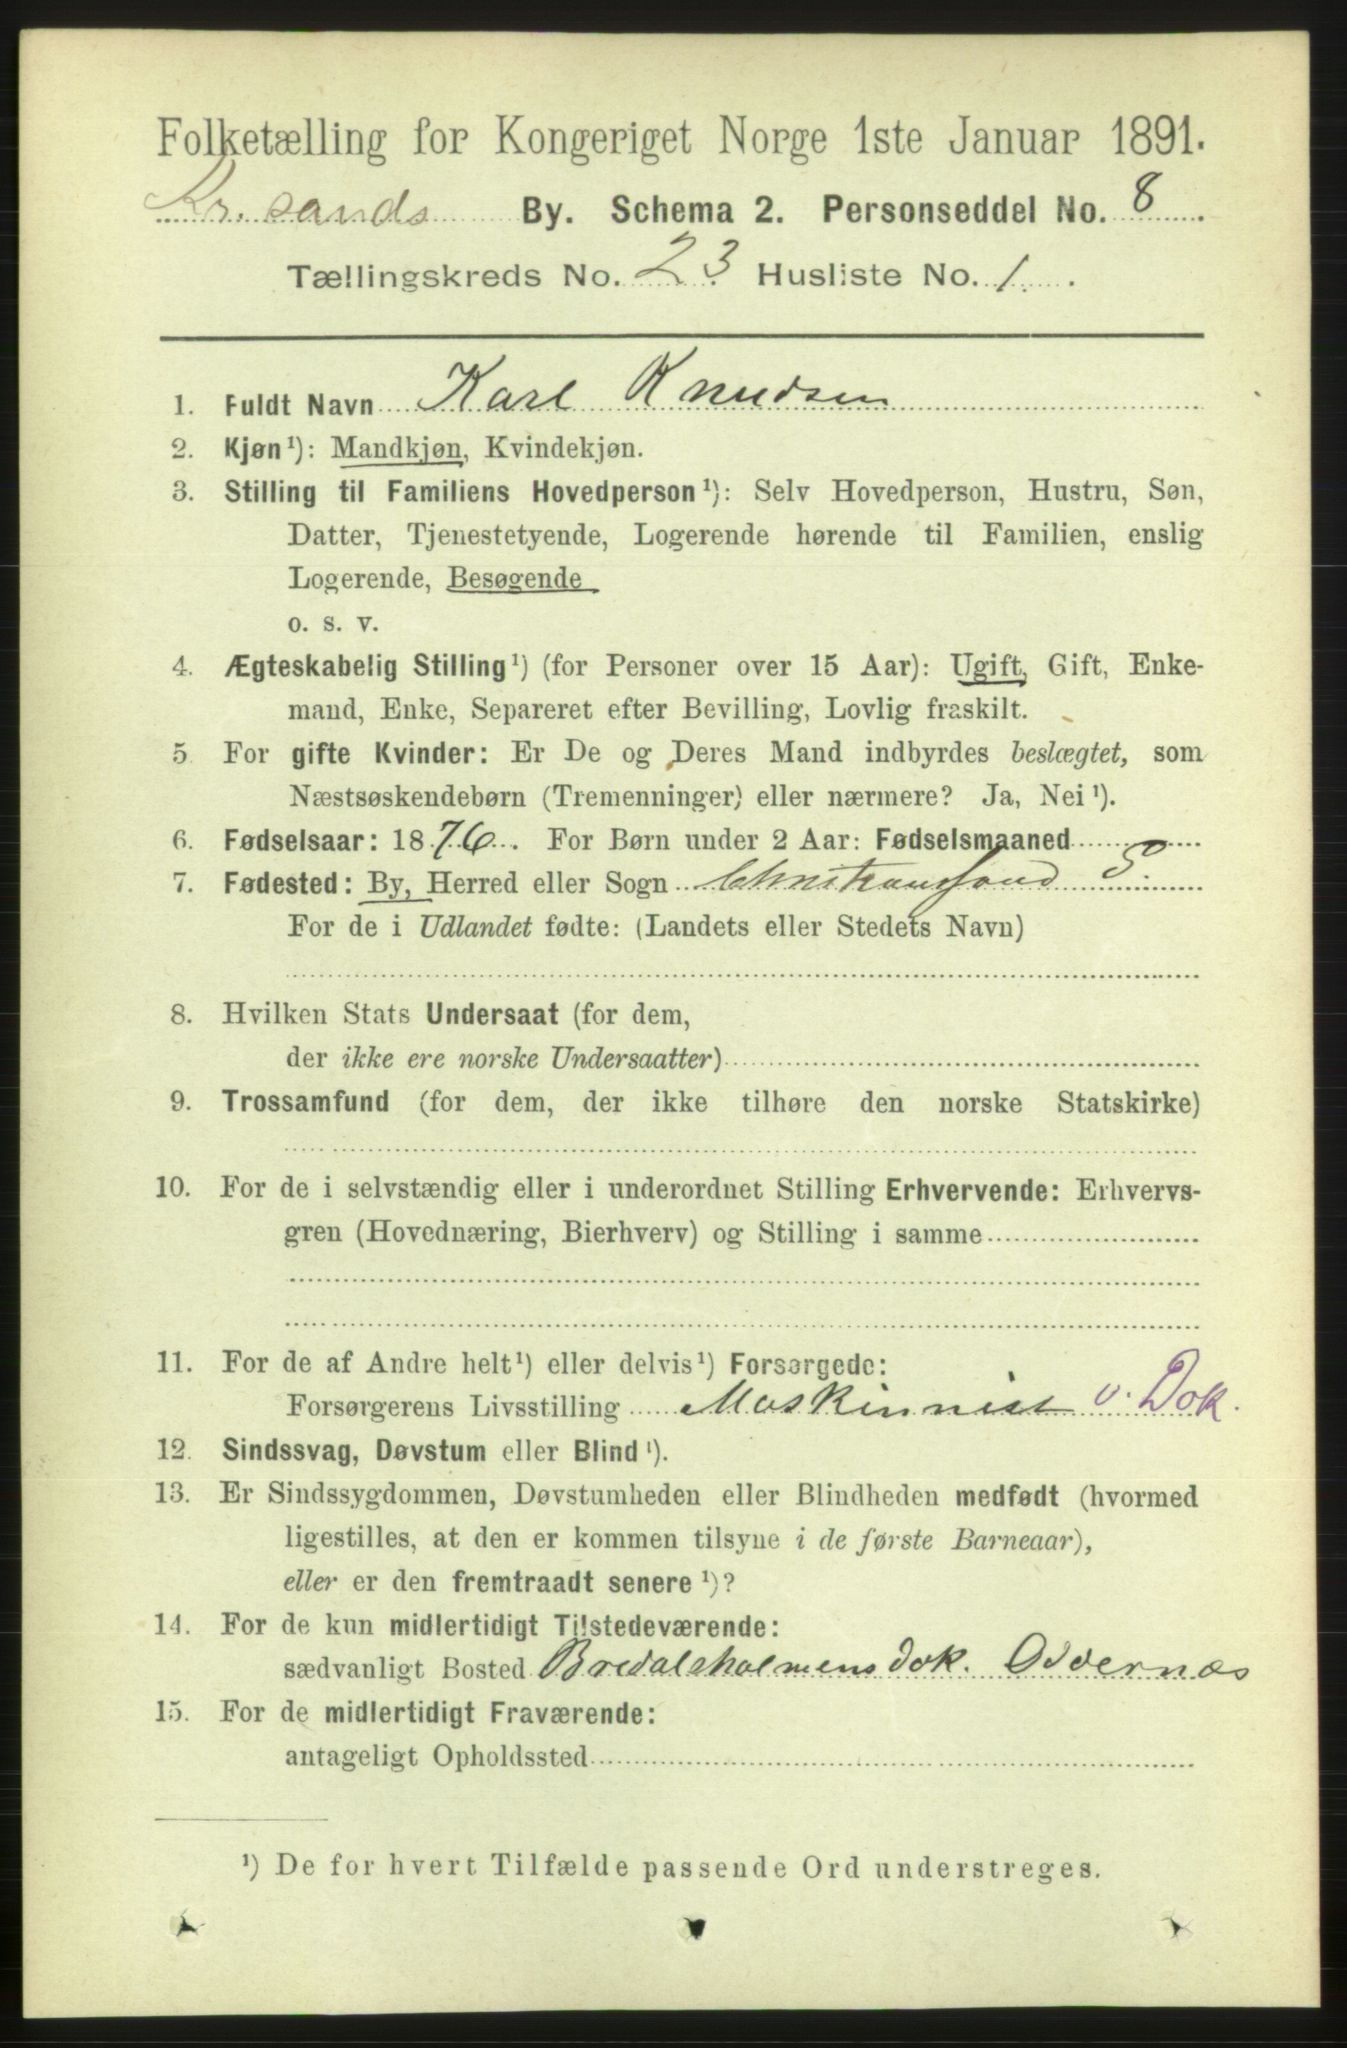 Folketælling for Kongeriget Norge 1ste Januar 1891.
Kr. sands By. Schema 2. Personseddel No. 8
Tællingskreds No. 23 Husliste No. 1.
1. Fuldt Navn Karl Knudsen
2. Kjøn¹): Mandkjøn, Kvindekjøn.
3. Stilling til Familiens Hovedperson¹): Selv Hovedperson, Hustru, Søn,
Datter, Tjenestetyende, Logerende hørende til Familien, enslig
Logerende, Besøgende
o. s. v.
4. Ægteskabelig Stilling¹) (for Personer over 15 Aar): Ugift, Gift, Enke-
mand, Enke, Separeret efter Bevilling, Lovlig fraskilt.
5 For gifte Kvinder: Er De og Deres Mand indbyrdes beslægtet, som
Næstsøskendebørn (Tremenninger) eller nærmere? Ja, Nei¹).
6. Fødselsaar: 1876. For Børn under 2 Aar: Fødselsmaaned
7. Fødested: By, Herred eller Sogn Christiansand S.
For de i Udlandet fødte: (Landets eller Stedets Navn)
8. Hvilken Stats Undersaat (for dem,
der ikke ere norske Undersaatter)
9. Trossamfund (for dem, der ikke tilhøre den norske Statskirke)
10. For de i selvstændig eller i underordnet Stilling Erhvervende: Erhvervs-
gren (Hovednæring, Bierhverv) og Stilling i samme
11. For de af Andre helt¹) eller delvis¹) Forsørgede:
Forsørgerens Livsstilling Maskinnist v. Dok.
12. Sindssvag, Døvstum eller Blind¹).
13. Er Sindssygdommen, Døvstumheden eller Blindheden medfødt (hvormed
ligestilles, at den er kommen tilsyne i de første Barneaar),
eller er den fremtraadt senere¹)?
14. For de kun midlertidigt Tilstedeværende:
sædvanligt Bosted Bredalsholmens dok. Oddernæs
15. For de midlertidigt Fraværende:
antageligt Opholdssted
¹) De for hvert Tilfælde passende Ord understreges.